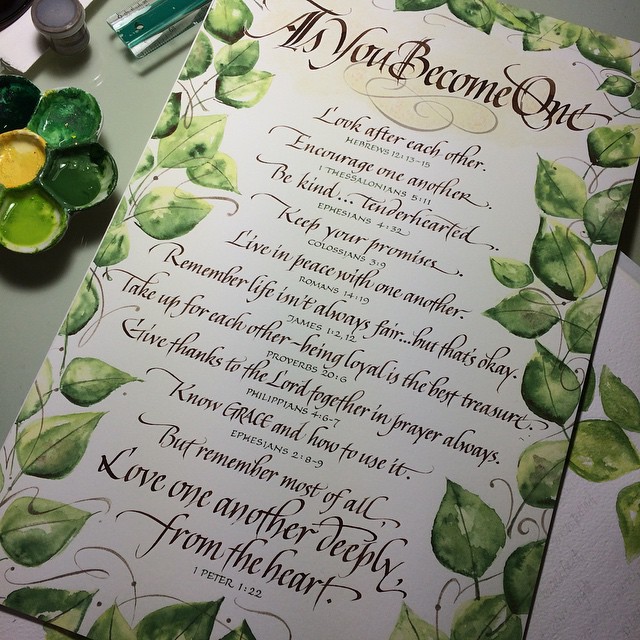 As You Become One
Look after each other.
HEBREWS 12:13-15
Encourage one another.
1 THESSALONIANS 5:11
Be kind... Tenderhearted.
EPHESIANS 4:32
Keep your promises.
COLOSSIANS 3:9
Live in peace with one another.
ROMANS 14:19
Remember life isn't always fair...but that's okay.
JAMES 1:2,12
Take up for each other-being loyal is the best treasure.
PROVERBS 20:6
Give thanks to the Lord together in prayer always.
PHILIPPIANS 4:6-7
Know GRACE and how to use it.
EPHESIANS 2:8-9
But remember most of all,
Love one another deeply,
from the heart.
1 PETER 1:22